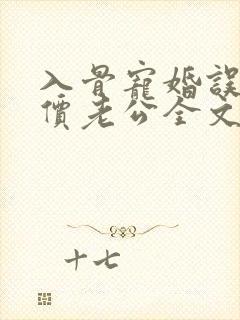 入骨寵婚誤
價老公全文
十七